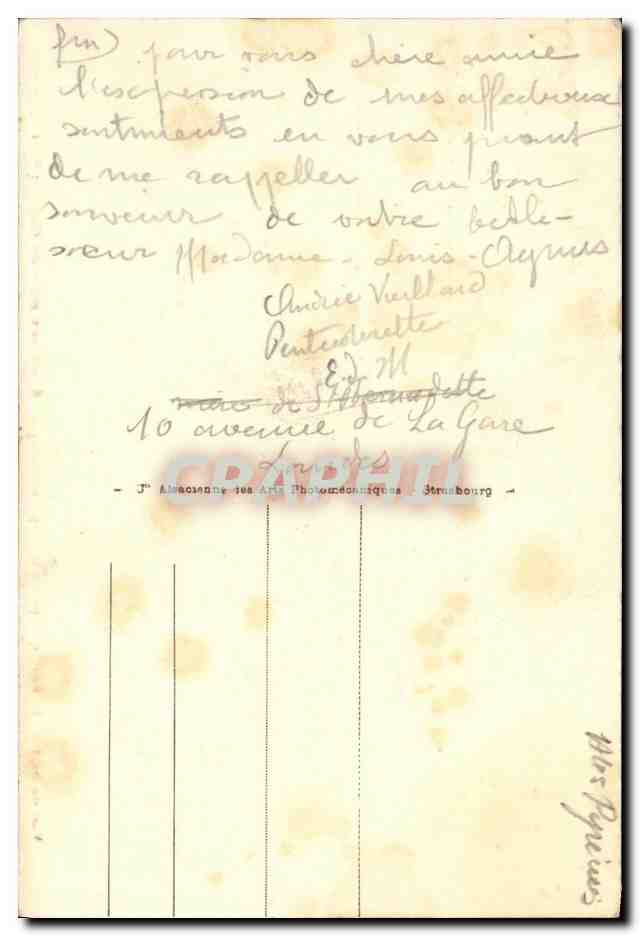 fin) pour vous chère amie
l'expression de mes affectueux
sentiments en vous priant
de me rappeller au bon
souvenir de votre belle-
soeur Madame - Louis - Agnus
Vieillard
E. d. M
de Bernadette
10 avenue de La Gare
Lourdes
CRAPHIL
- Jn Alsacienne des Arts Photomécaniques - Strasbourg -
Htes Pyrénées